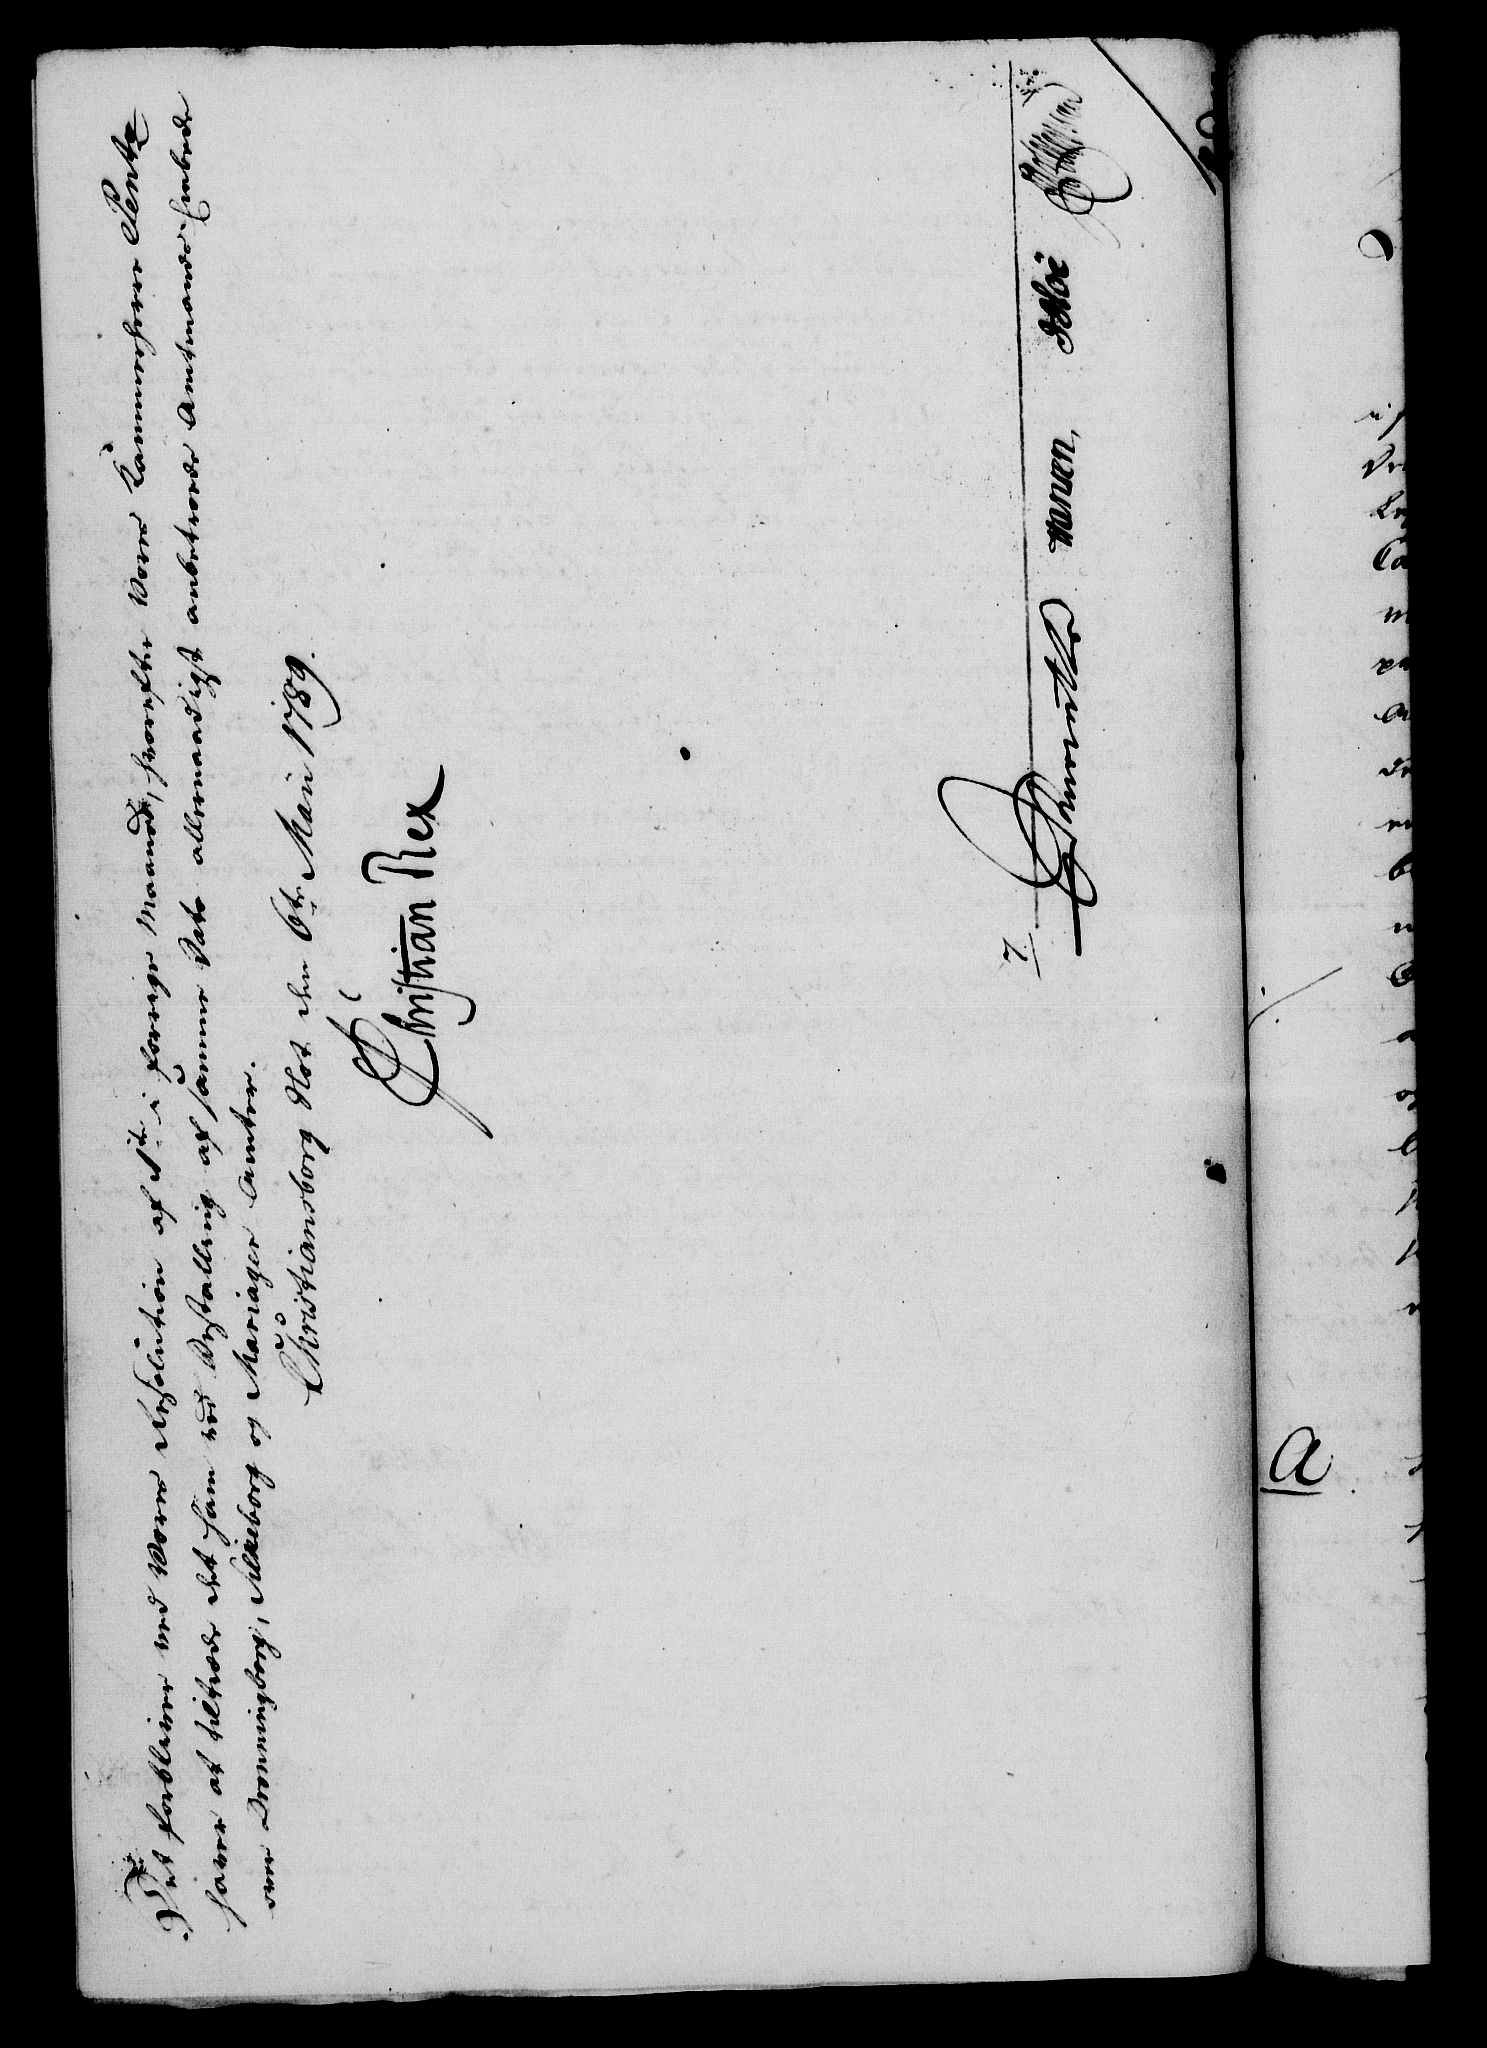 Det forbliver ved Vores Resolution af 1te i forrige Maaned, hvorefter Vores Kammerherre Pentz
haver at tiltræde det ham ved Bestalling af samme Dato allernaadigst anbetroede Amtmands Embede
over Dronningborg, Silkeborg og Mariager Amter.
Christiansborg Slot den 6te Maii 1789.
Christian Rex
7.
Hansen,
A